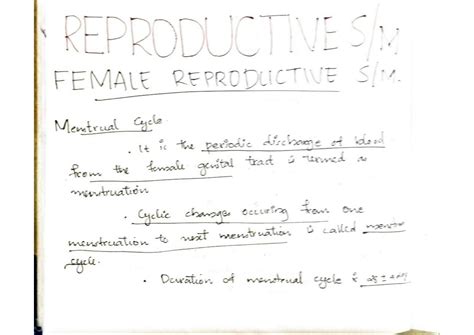 REPRODUCTIVE S/M
FEMALE REPRODUCTIVE S/M.
Menstrual Cycle
. It is the periodic discharge of blood
from the female genital tract is termed as
menstruation
. Cyclic changes occuring from one
menstruation to next menstruation is called
cycle.
. Duration of menstrual cycle is